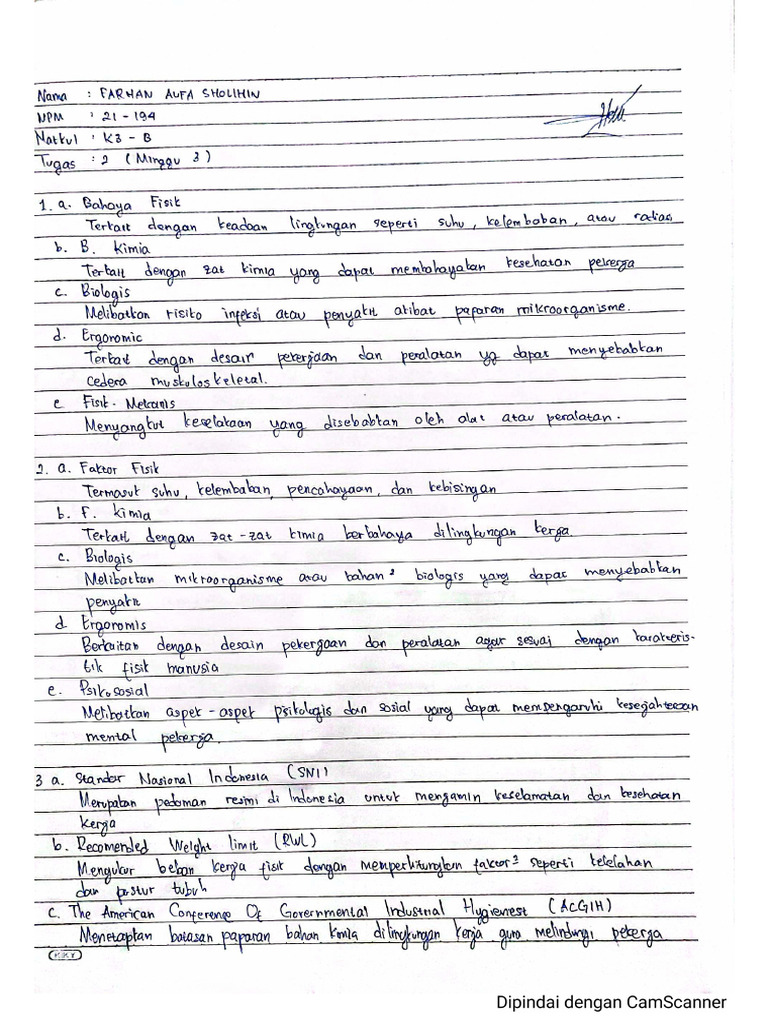 Nama : FARHAN AUFA SHOLIHIN
NPM : 21 - 194
Matkul : K3 - B
Tugas : 2 ( Minggu 3 )
1. a. Bahaya Fisik
Terkait dengan keadaan lingkungan seperti suhu, kelembaban, atau radiasi
b. B. Kimia
Terkait dengan zat kimia yang dapat membahayakan kesehatan pekerja
c. Biologis
Melibatkan risiko infeksi atau penyakit akibat paparan mikroorganisme.
d. Ergonomic
Terkait dengan desain pekerjaan dan peralatan yg dapat menyebabkan
cedera muskuloskeletal.
e Fisik - Mekanis
Menyangkut keselataan yang disebabkan oleh alat atau peralatan.
2. a. Faktor Fisik
Termasuk suhu, kelembaban, pencahayaan, dan kebisingan
b. F. Kimia
Terkait dengan zat-zat kimia berbahaya dilingkungan kerja.
c. Biologis
Melibatkan mikroorganisme atau bahan² biologis yang dapat menyebabkan
penyakit
d. Ergonomis
Berkaitan dengan desain pekerjaan dan peralatan agar sesuai dengan karakteris-
tik fisik manusia
e. Psikososial
Melibatkan aspek-aspek psikologis dan sosial yang dapat mempengaruhi kesejahteraan
mental pekerja.
3 a. Standar Nasional Indonesia (SNI)
Merupakan pedoman resmi di Indonesia untuk mengamin keselamatan dan kesehatan
kerja
b. Recomended Weight limit (RWL)
Mengukur beban kerja fisik dengan memperhitungkan faktor² seperti kelelahan
dan postur tubuh
c. The American Conference Of Governmental Industrial Hygienest (ACGIH)
Menetapkan batasan paparan bahan kimia dilingkungan kerja guna melindungi pekerja
KKY
Dipindai dengan CamScanner